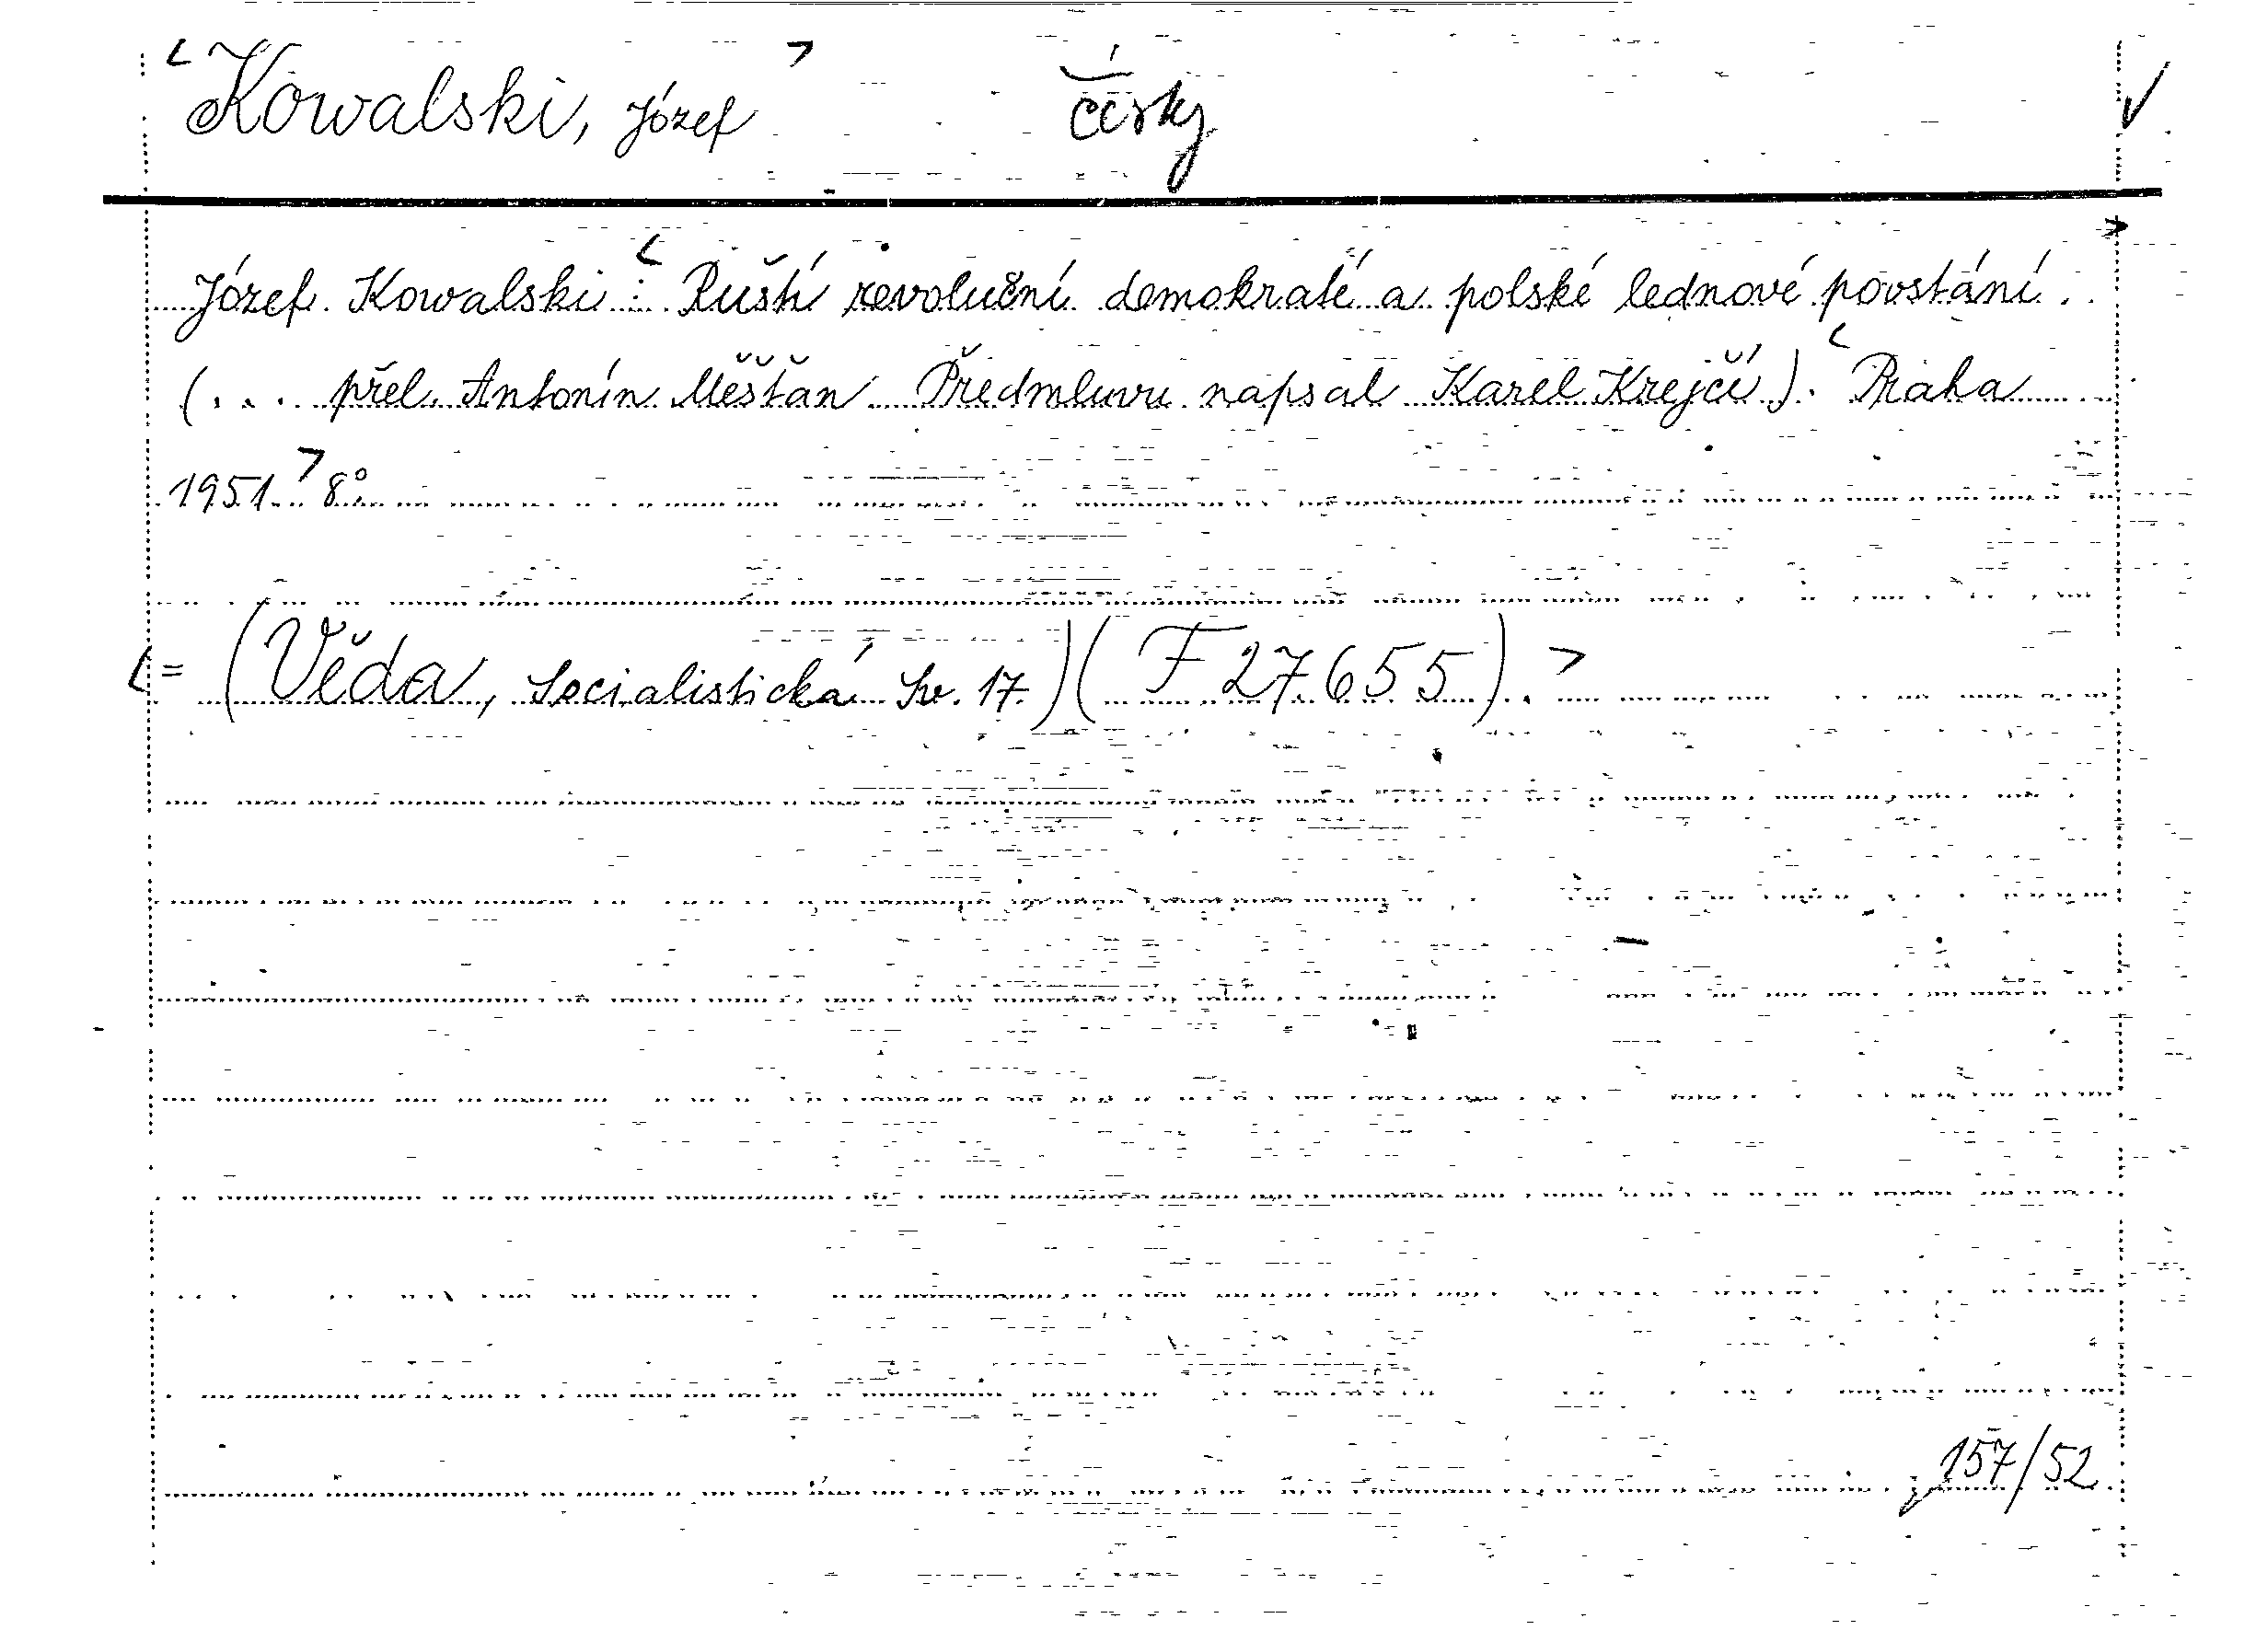 < Kowalski, Józef > česky ✓
Józef Kowalski: < Ruští revoluční demokraté a polské lednové povstání. >
(... přel. Antonín Měšťan Předmluvu napsal Karel Krejčí). < Praha
1951. > 8°.
< = (Věda, Socialistická Sv. 17.) (F 27.655). >
157/52